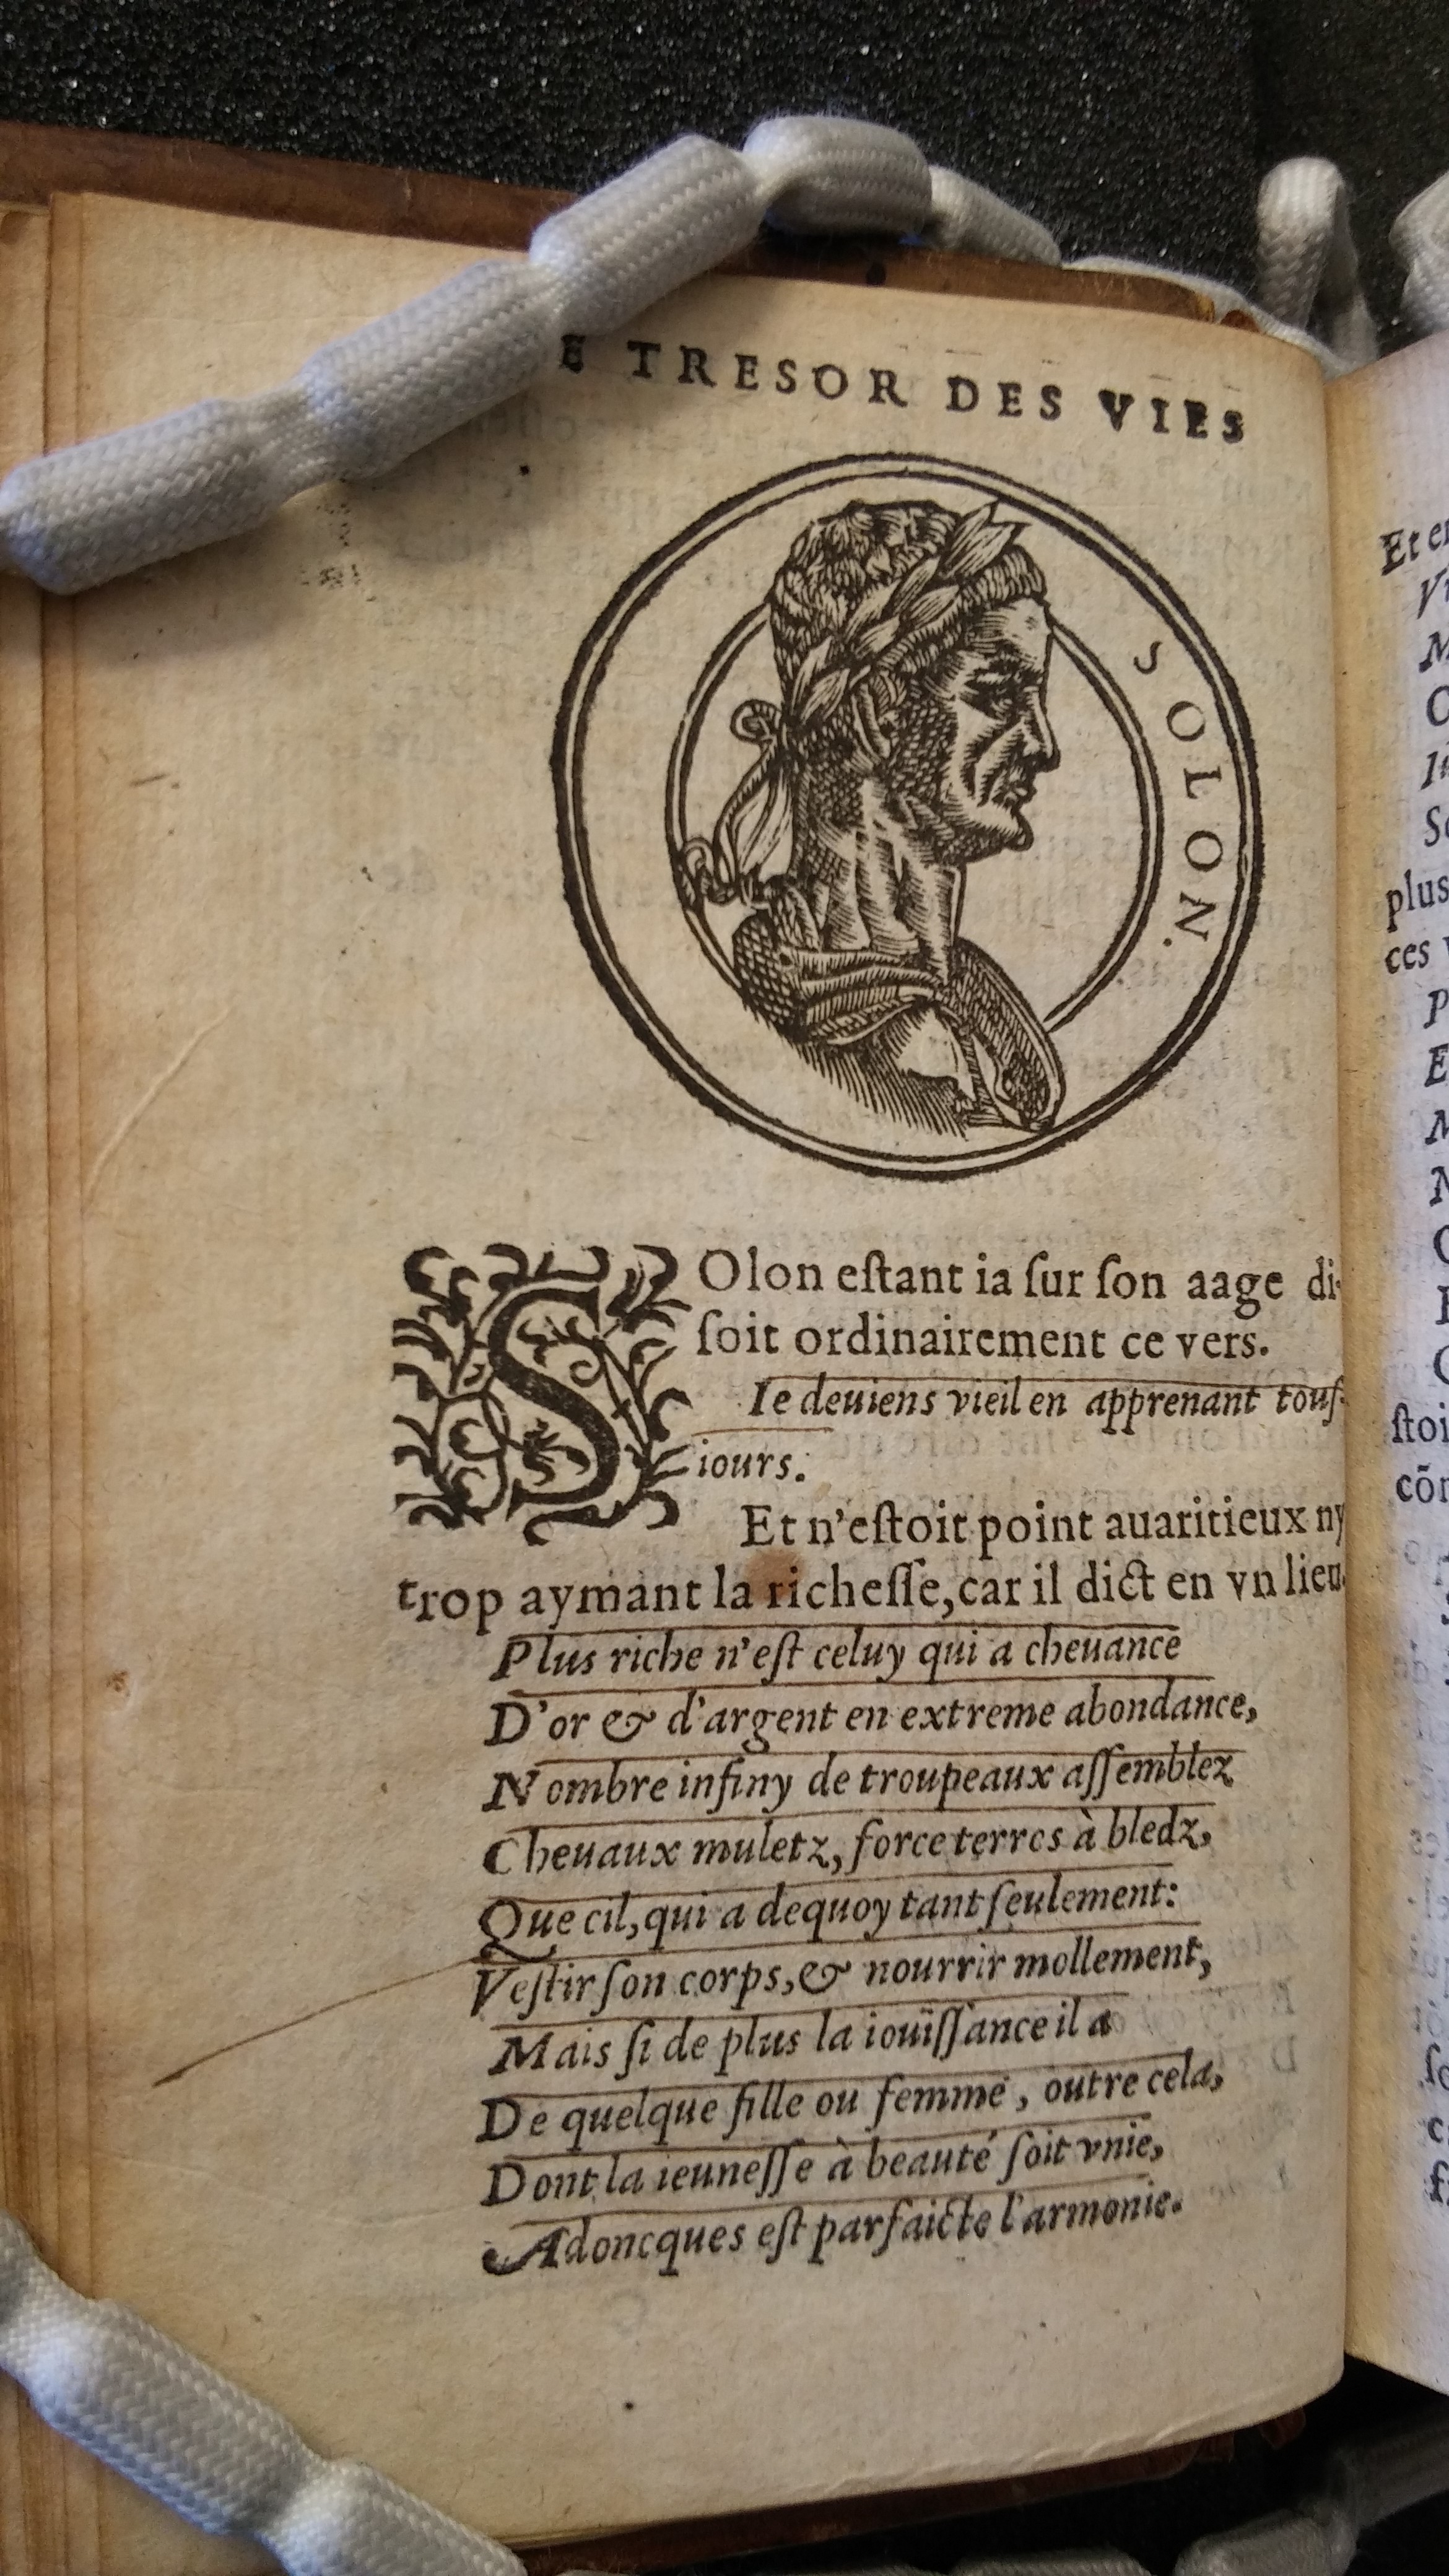 E TRESOR DES VIES
SOLON.
SOlon eſtant ia ſur ſon aage di-
ſoit ordinairement ce vers.
Ie deuiens vieil en apprenant touſ-
iours.
Et n'eſtoit point auaritieux ny
trop aymant la richeſſe, car il dict en vn lieu.
Plus riche n'eſt celuy qui a cheuance
D'or & d'argent en extreme abondance,
Nombre infiny de troupeaux aſſemblez
Cheuaux muletz, force terres à bledz,
Que cil, qui a dequoy tant ſeulement:
Veſtir ſon corps, & nourrir mollement,
Mais ſi de plus la iouïſſance il a
De quelque fille ou femme, outre cela,
Dont la ieuneſſe à beauté ſoit vnie,
Adoncques eſt parfaicte l'armonie.
Et e
plus
ces
ſtoi
cõ